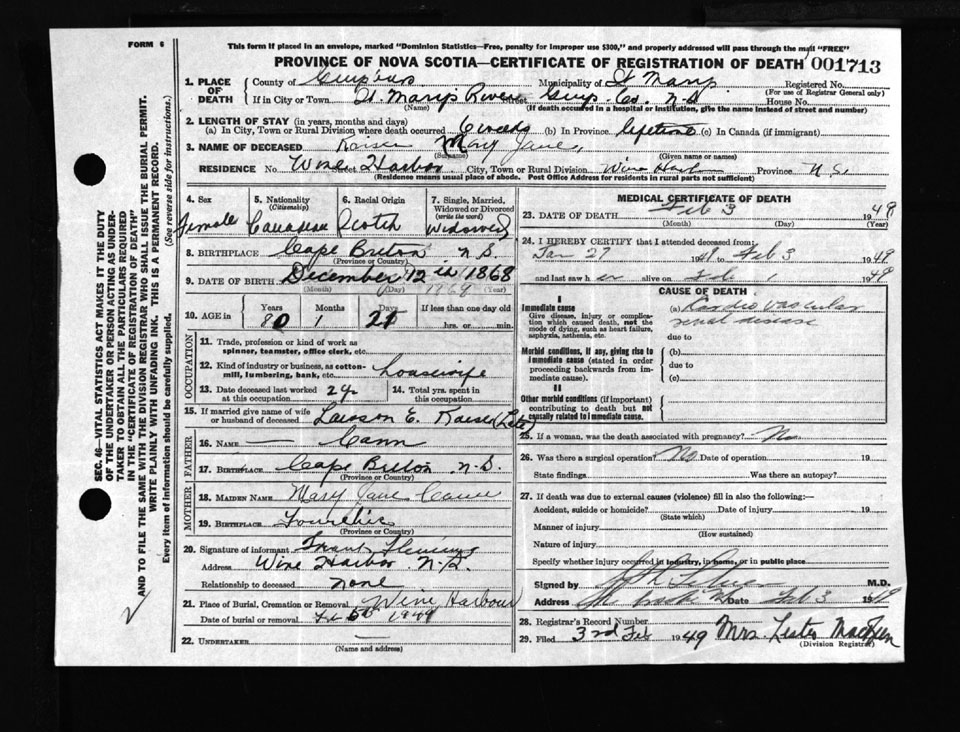 FORM 6
This form if placed in an envelope, marked "Dominion Statistics—Free, penalty for improper use $300," and properly addressed will pass through the mail "FREE"
PROVINCE OF NOVA SCOTIA—CERTIFICATE OF REGISTRATION OF DEATH
001713
1. PLACE OF DEATH
County of Municipality of St Marys Registered No.
(For use of Registrar General only)
If in City or Town St. Marys River Guys. Co. N.S. House No.
(Name) (If death occured in a hospital or institution, give the name instead of street and number)
2. LENGTH OF STAY (in years, months and days)
(a) In City, Town or Rural Division where death occurred 6 weeks (b) In Province lifetime (c) In Canada (if immigrant)
3. NAME OF DECEASED Kaiser Mary Jane,
(Surname) (Given name or names)
RESIDENCE No Wine Harbor Street City, Town or Rural Division Wine Province N S.
(Residence means usual place of abode. Post Office Address for residents in rural parts not sufficient)
4. Sex
Female
5. Nationality
(Citizenship)
Canadian
6. Racial Origin
Scotch
7. Single, Married, Widowed or Divorced
(write the word)
Widowed
8. BIRTHPLACE Cape Breton N.S.
(Province or Country)
9. DATE OF BIRTH December 12 1868
(Month) (Day) 1869 (Year)
10. AGE in
Years 80
Months 1
Days 21
If less than one day old
hrs. or min.
OCCUPATION
11. Trade, profession or kind of work as spinner, teamster, office clerk, etc.
12. Kind of industry or business, as cotton-mill, lumbering, bank, etc. housewife
13. Date deceased last worked at this occupation
14. Total yrs. spent in this occupation
15. If married give name of wife or husband of deceased E. (Late)
FATHER
16. NAME — Cann
17. BIRTHPLACE Cape Breton N.S.
(Province or Country)
MOTHER
18. MAIDEN NAME Mary Jane
19. BIRTHPLACE
(Province or Country)
20. Signature of informant Frank Fleming
Address Wine Harbor N.S.
Relationship to deceased none
21. Place of Burial, Cremation or Removal Wine Harbour
Date of burial or removal 1949
22. UNDERTAKER —
(Name and address)
MEDICAL CERTIFICATE OF DEATH
23. DATE OF DEATH Feb 3 1949
(Month) (Day) (Year)
24. I HEREBY CERTIFY that I attended deceased from:
Jan 27 1949 to Feb 3 1949
and last saw her alive on Feb 1 1949
CAUSE OF DEATH
I
Immediate cause
Give disease, injury or complication which caused death, not the mode of dying, such as heart failure, asphyxia, asthenia, etc.
(a) Cardio vascular
renal disease
due to
Morbid conditions, if any, giving rise to immediate cause (stated in order proceeding backwards from immediate cause).
(b)
due to
(c)
II
Other morbid conditions (if important) contributing to death but not causally related to immediate cause.
25. If a woman, was the death associated with pregnancy? No
26. Was there a surgical operation? No Date of operation 19
State findings Was there an autopsy?
27. If death was due to external causes (violence) fill in also the following:—
Accident, suicide or homicide? Date of injury 19
(State which)
Manner of injury
(How sustained)
Nature of injury
Specify whether injury occurred in industry, in home, or in public place
Signed by M.D.
Address Date Feb 3 1949
28. Registrar's Record Number
29. Filed 3rd Feb 1949 Mrs. Lester
(Division Registrar)
SEC. 46—VITAL STATISTICS ACT MAKES IT THE DUTY OF THE UNDERTAKER OR PERSON ACTING AS UNDERTAKER TO OBTAIN ALL THE PARTICULARS REQUIRED IN THE "CERTIFICATE OF REGISTRATION OF DEATH" AND TO FILE THE SAME WITH THE DIVISION REGISTRAR WHO SHALL ISSUE THE BURIAL PERMIT.
WRITE PLAINLY WITH UNFADING INK. THIS IS A PERMANENT RECORD.
Every item of information should be carefully supplied. (See reverse side for instructions.)